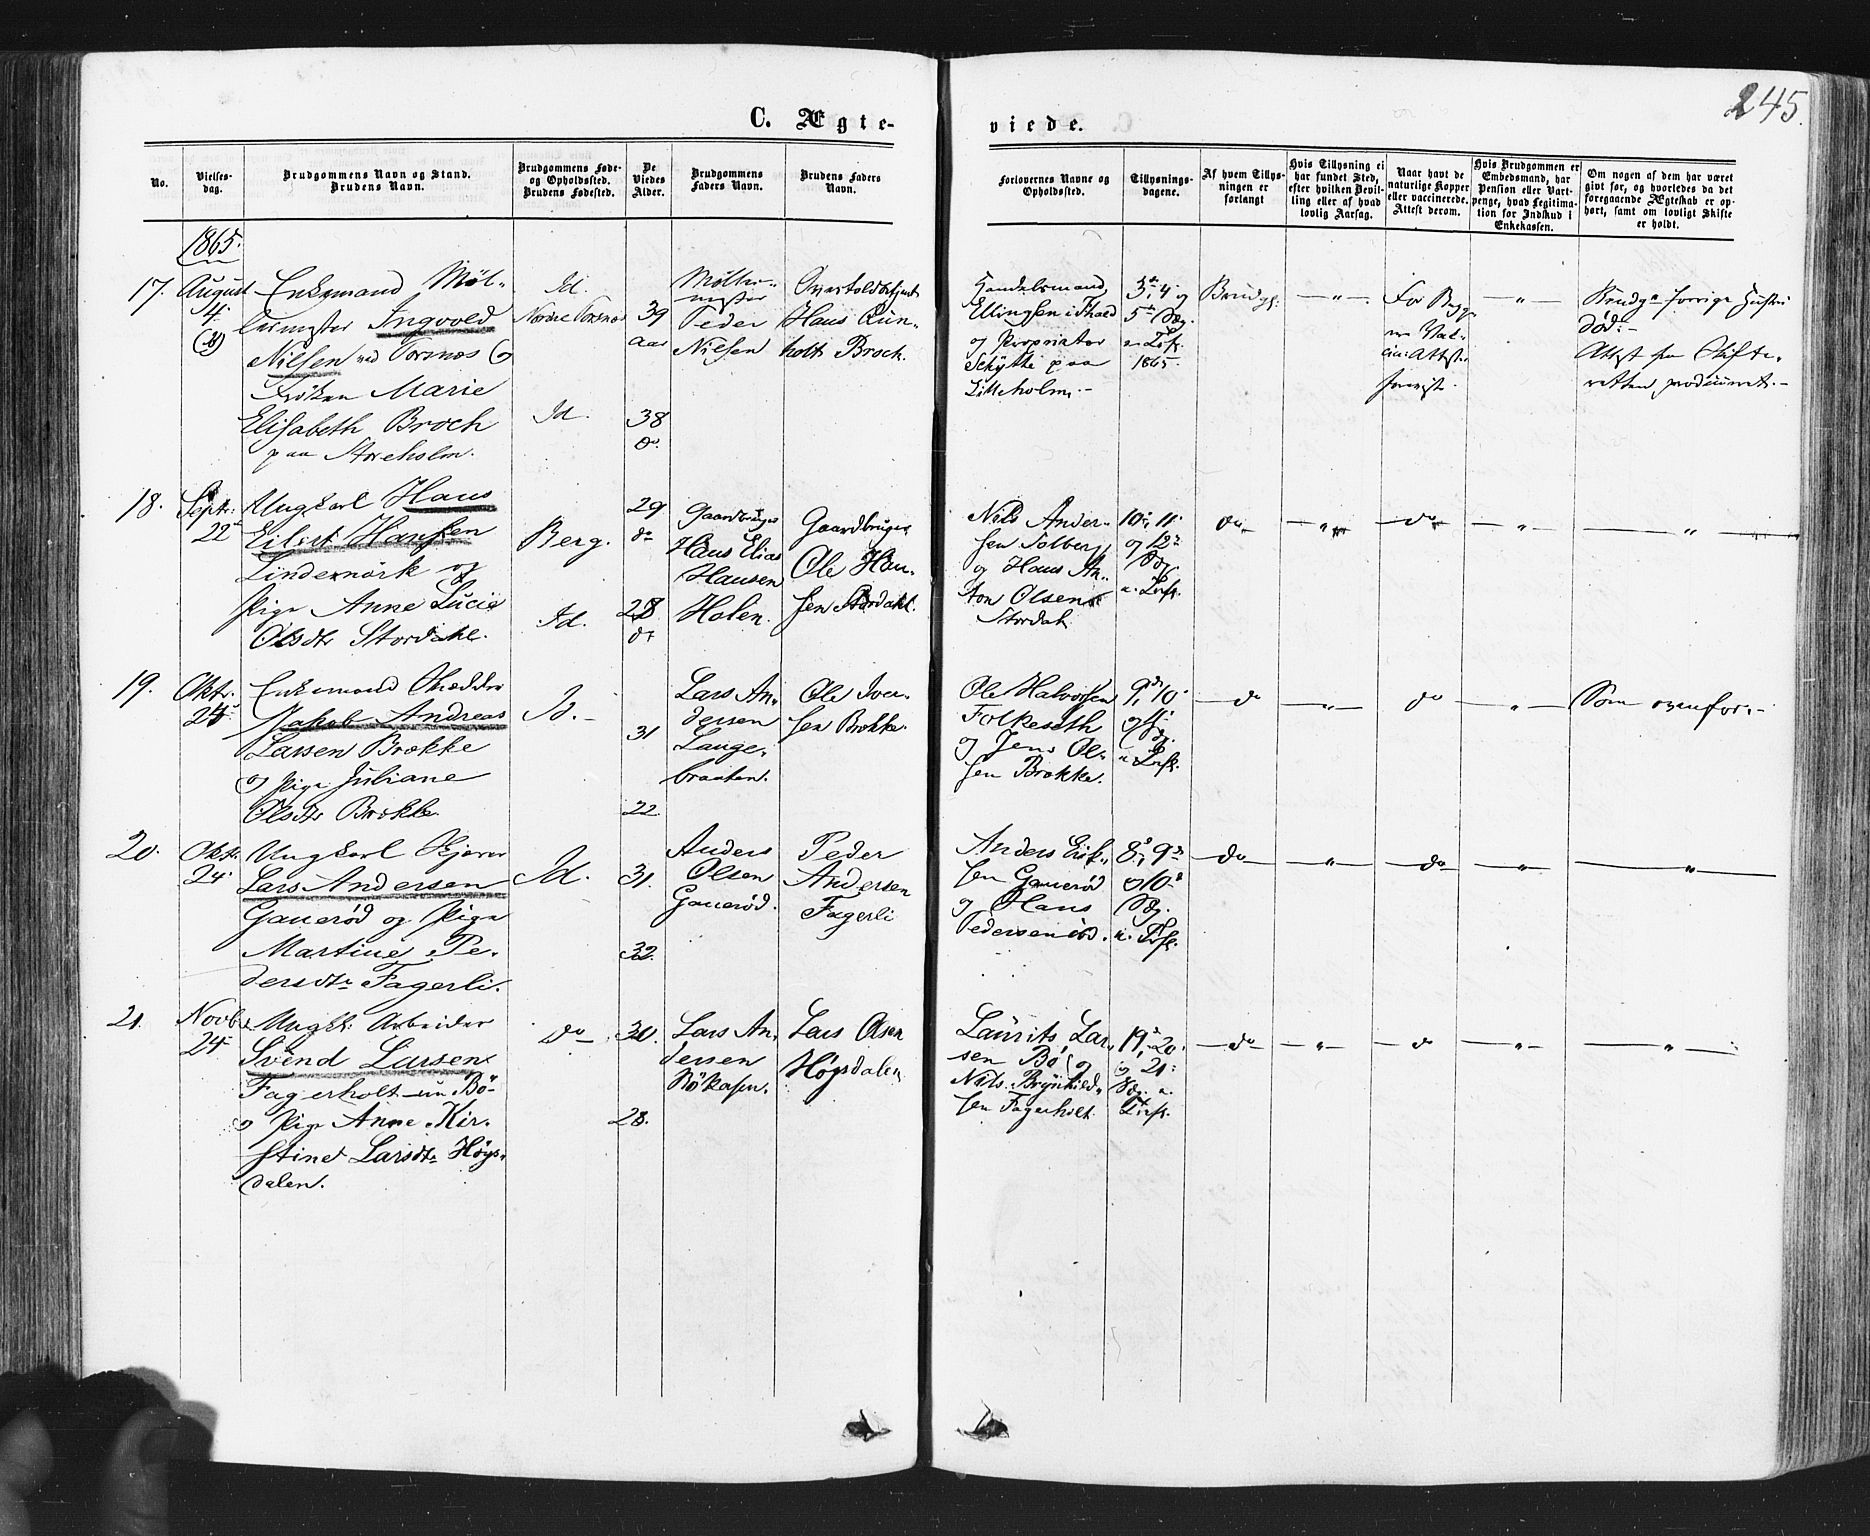 245.
C. Ægte-
viede.
No.
Vielses-
dag.
Brudgommens Navn og Stand.
Brudens Navn.
Brudgommens Føde-
og Opholdssted.
Brudens Fødested.
De
Viedes
Alder.
Brudgommens
Faders Navn.
Brudens Faders
Navn.
Forlovernes Navne og
Opholdssted.
Tillysnings-
dagene.
Af hvem Tillys-
ningen er
forlangt
Hvis Tillysning ei
har fundet Sted,
efter hvilken Bevil-
ling eller af hvad
lovlig Aarsag.
Naar havt de
naturlige Kopper
eller vaccinerede.
Attest derom.
Hvis Brudgommen er
Embedsmand, har
Pension eller Vart-
penge, hvad Legitima-
tion for Indskud i
Enkekassen.
Om nogen af dem har været
givt før, og hvorledes da det
foregaaende Ægteskab er op-
hørt, samt om lovligt Skifte
er holdt.
1865.
17.
August
4.
Enkemand Møl-
lermester Ingvold
Nilsen ved Torsnæs og
Frøken Marie
Elisabeth Broch
paa Storeholm.
Id.
Nordre Torsnæs
Id.
39
Aar
38
do.
Møller-
mester
Peder
Nilsen
Overtoldbetjent
Hans Lün-
holt Broch.
Handelsmand
Ellingsen i Fhald
og Proprietær
Schytte paa
Lilleholm.-
3die, 4. og
5te Søg.
e. Tref.
1865.
Brudg.
-"-
For Begge
Vac-
cin. Attester
forevist.
-"-
Brudg. forrige Hustru
død.-
Attest fra Skifte-
retten produceret.-
18.
Septr.
22
Ungkarl Hans
Eilert Hansen
Lindernörk og
Pige Anne Lucie
Olsdtr Stordahl.
Berg.
Id.
29
do
28
do
Gaardbruger
Hans Elias
Hansen
Holen.
Gaardbruger
Ole Han-
sen Stordahl.
Nils Ander-
sen Solberg
og Hans An-
ton Olsen
Stordal.
10de, 11.
og 12te
Søg.
e. Tref.
do
-"-
do
-"-
"
19.
Oktr.
24
Enkemand Skrædder
Jakob Andreas
Larsen Brække
og Pige Juliane
Olsdtr Brekke.
Id.-
31
22
Lars An-
dersen
Lange-
braaten.
Ole Iver-
sen Brække.
Ole Halvorsen
Folkeseth
og Jens Ol-
sen Brække.
9de, 10.
Søg.
e. Tref.
do
-"-
do
-"-
Som ovenfor.-
20.
Oktr.
24.
Ungkarl Kjører
Lars Andersen
Gauerød og Pige
Martine Pe-
dersdtr Fagerli.
Id.
31.
32.
Anders
Olsen
Gauerød.
Peder
Andersen
Fagerli
Anders Erik-
sen Gauerød
og Hans
Pedersen ibd.
8de, 9de
og 10de
Søg.
e. Tref.
do
"
do
-"-
"
21.
Novbr.
24
Ungk. Arbeider
Svend Larsen
Fagerholt Bø-
og Pige Anne Kir-
stine Larsdtr Høgs-
dalen.
do
30.
28.
Lars An-
dersen
Lars Olsen
Høgsdalen
Laurits Lar-
sen Bø og
Nils Brynhild-
sen Fagerholt
19de, 20.
og 21.
Søg. e.
Tref.
do
-"-
do
-"-
"